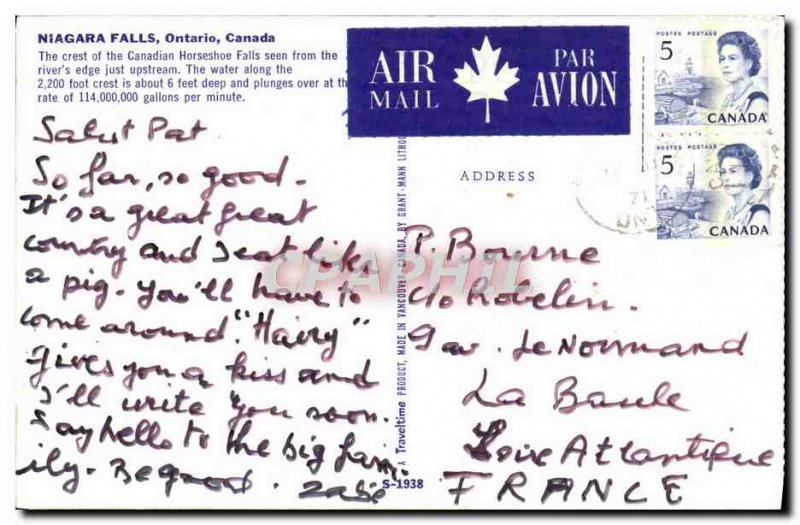 NIAGARA FALLS, Ontario, Canada
The crest of the Canadian Horseshoe Falls seen from the
river's edge just upstream. The water along the
2,200 foot crest is about 6 feet deep and plunges over at the
rate of 114,000,000 gallons per minute.
AIR
MAIL
PAR
AVION
POSTES POSTAGE
5
CANADA
POSTES POSTAGE
5
CANADA
71
Salut Pat
So far, so good.
It's a great great
country and I eat like
a pig. You'll have to
come around. "Hairy"
gives you a kiss and
I'll write you soon.
Say hello to the big fam
ily. Be good.
A Traveltime PRODUCT, MADE IN VANCOUVER, CANADA, BY GRANT-MANN LITHO
S-1938
ADDRESS
P. Bourne
c/o
9 av. Le Normand
La Baule
Loire Atlantique
FRANCE
CPAPHIL